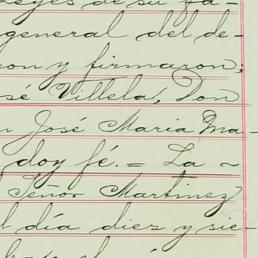 de su fa-
general del de-
on y firmaron;
sé Villela, Don
José María Ma-
doy fé. = La ~
Señor Martinez
l día diez y sie-